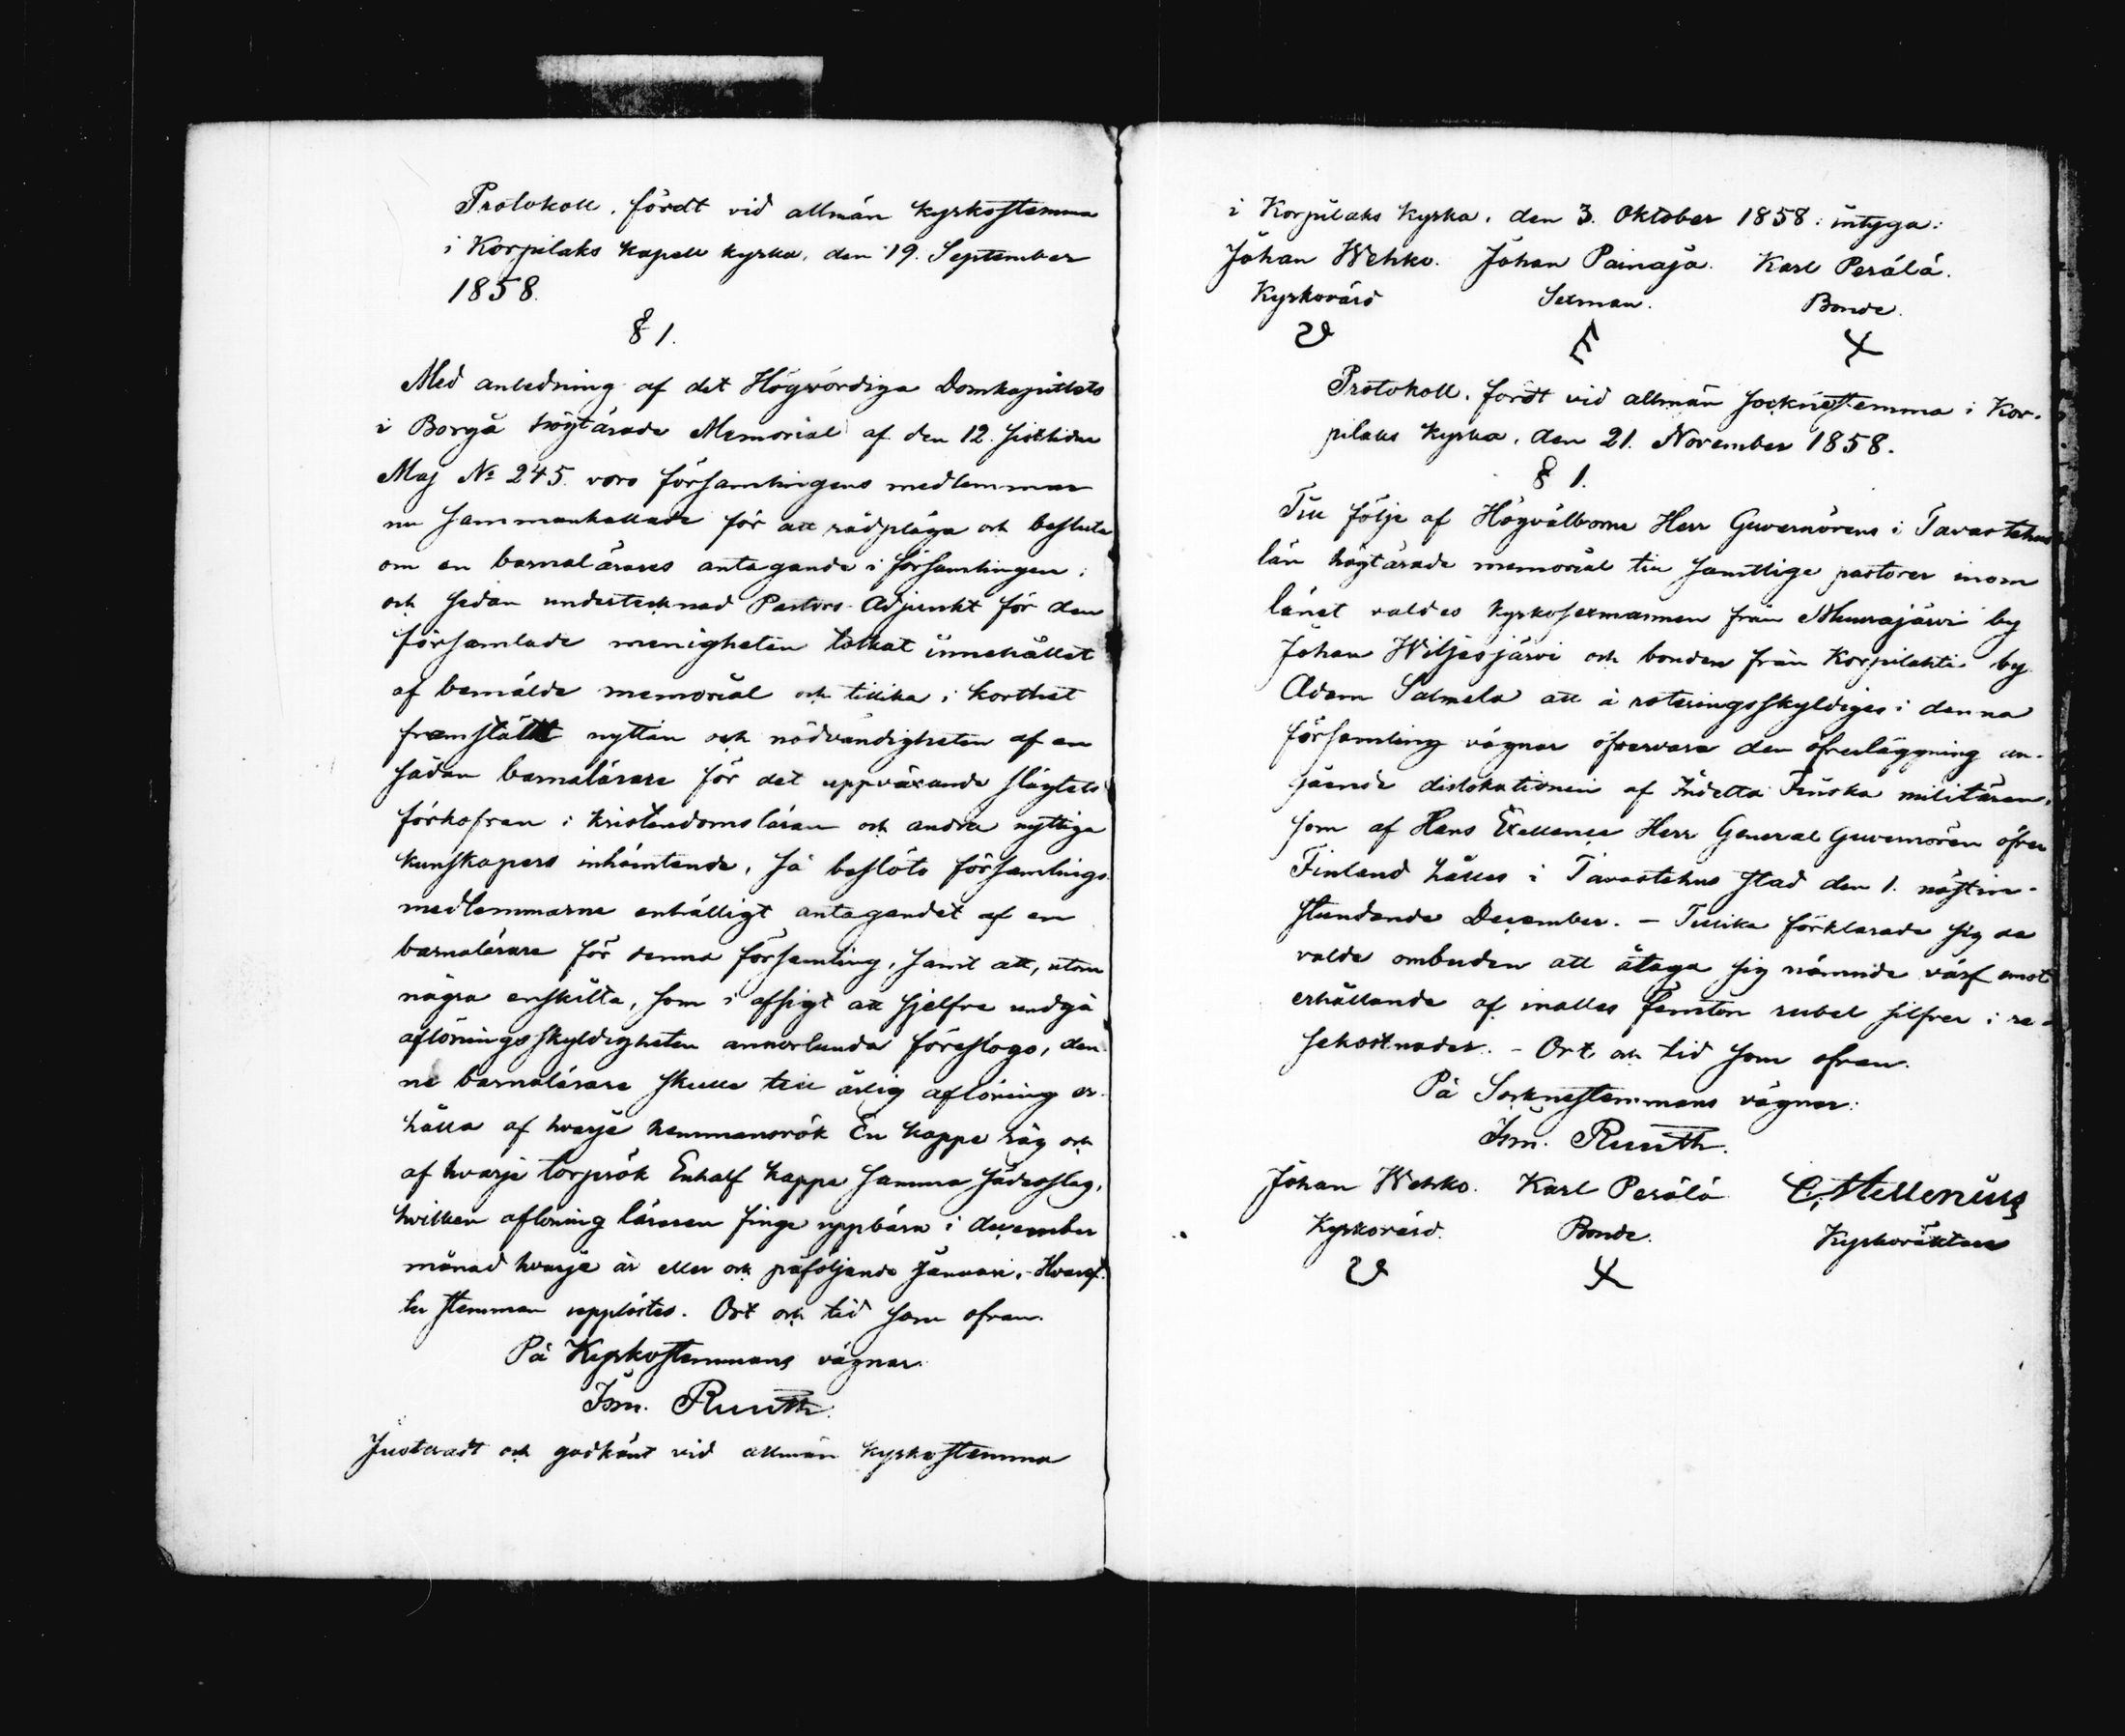 Protokoll, fördt vid allmän kyrkostemma
i Korpilaks kapell kyrka, den 19. September
1858.
§ 1.
Med anledning af det Högvördiga Domkapitlets
i Borgå högtärade Memorial af den 12. sistlidne
Maj No 245. voro församlingens medlemmar
nu sammankallade för att rådpläga och besluta
om en barnalärares antagande i församlingen;
och sedan undertecknad Pastors-Adjunkt för den
församlade menigheten tolkat innehållet
af bemälde memorial och tillika i korthet
framstält nyttan och nödvändigheten af en
sådan barnalärare för det uppväxande slägtets
förkofran i kristendomsläran och andra nyttiga
kunskapers inhämtande, så beslöts församlings-
medlemmarne enhälligt antagandet af en
barnalärare för denna församling, samt att, utom
några enskilta, som i afsigt att sjelfve undgå
aflöningsskyldigheten annorlunda föreslogo, den-
ne barnalärare skulle till årlig aflöning er-
hålla af hvarje hemmansrök En kappe råg och
af hvarje torprök Enhalf kappe samma sädesslag,
hvilken aflöning läraren finge uppbära i december
månad hvarje år eller och påföljande Januari. - Hvaref-
ter stemman upplöstes. Ort och tid som ofvan.
På Kyrkostemmans vägnar:
Ism. Ruuth.
Justeradt och godkänt vid allmän kyrkostemma
i Korpilaks kyrka, den 3. Oktober 1858: intyga:
Johan Wehko. Johan Painaja. Karl Perälä.
Kyrkovärd Sexman. Bonde.
Protokoll, fördt vid allmän socknestemma i Kor-
pilaks kyrka, den 21. November 1858.
§ 1.
Till följe af Högvälborne Herr Guvernörens i Tavastehus
län högtärade memorial till samtlige pastorer inom
länet valdes kyrkosexmannen från Muurajärvi by
Johan Wiljasjärvi och bonden från Korpilahti by
Adam Salmela att å roteringsskyldiges i denna
församling vägnar öfvervara den öfverläggning an-
gående dislokationen af Indelta Finska militären,
som af Hans Exellence Herr General Guvernören öfver
Finland hålles i Tavastehus stad den 1. nästin-
stundande December. - Tillika förklarade sig de
valde ombuden att åtaga sig nämnde värf emot
erhållande af inalles femton rubel silfver i re-
sekostnader. - Ort och tid som ofvan.
På Socknestemmans vägnar:
Ism. Ruuth.
Johan Wehko. Karl Perälä C. Mellenius
Kyrkovärd. Bonde. Kyrkoväktare